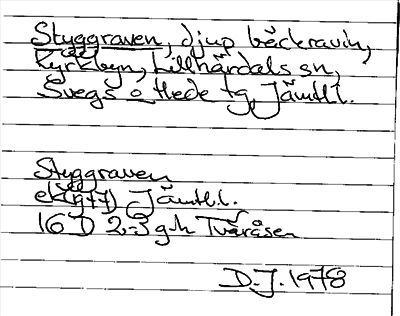 Styggraven, djup bäckravin,
Kyrkbyn, Lillhärdals sn,
Svegs o Hede tg, Jämtl.
Styggraven
ek(g77) Jämtl.
16D 2-3 g-h Tvåråsen
D.J. 1978